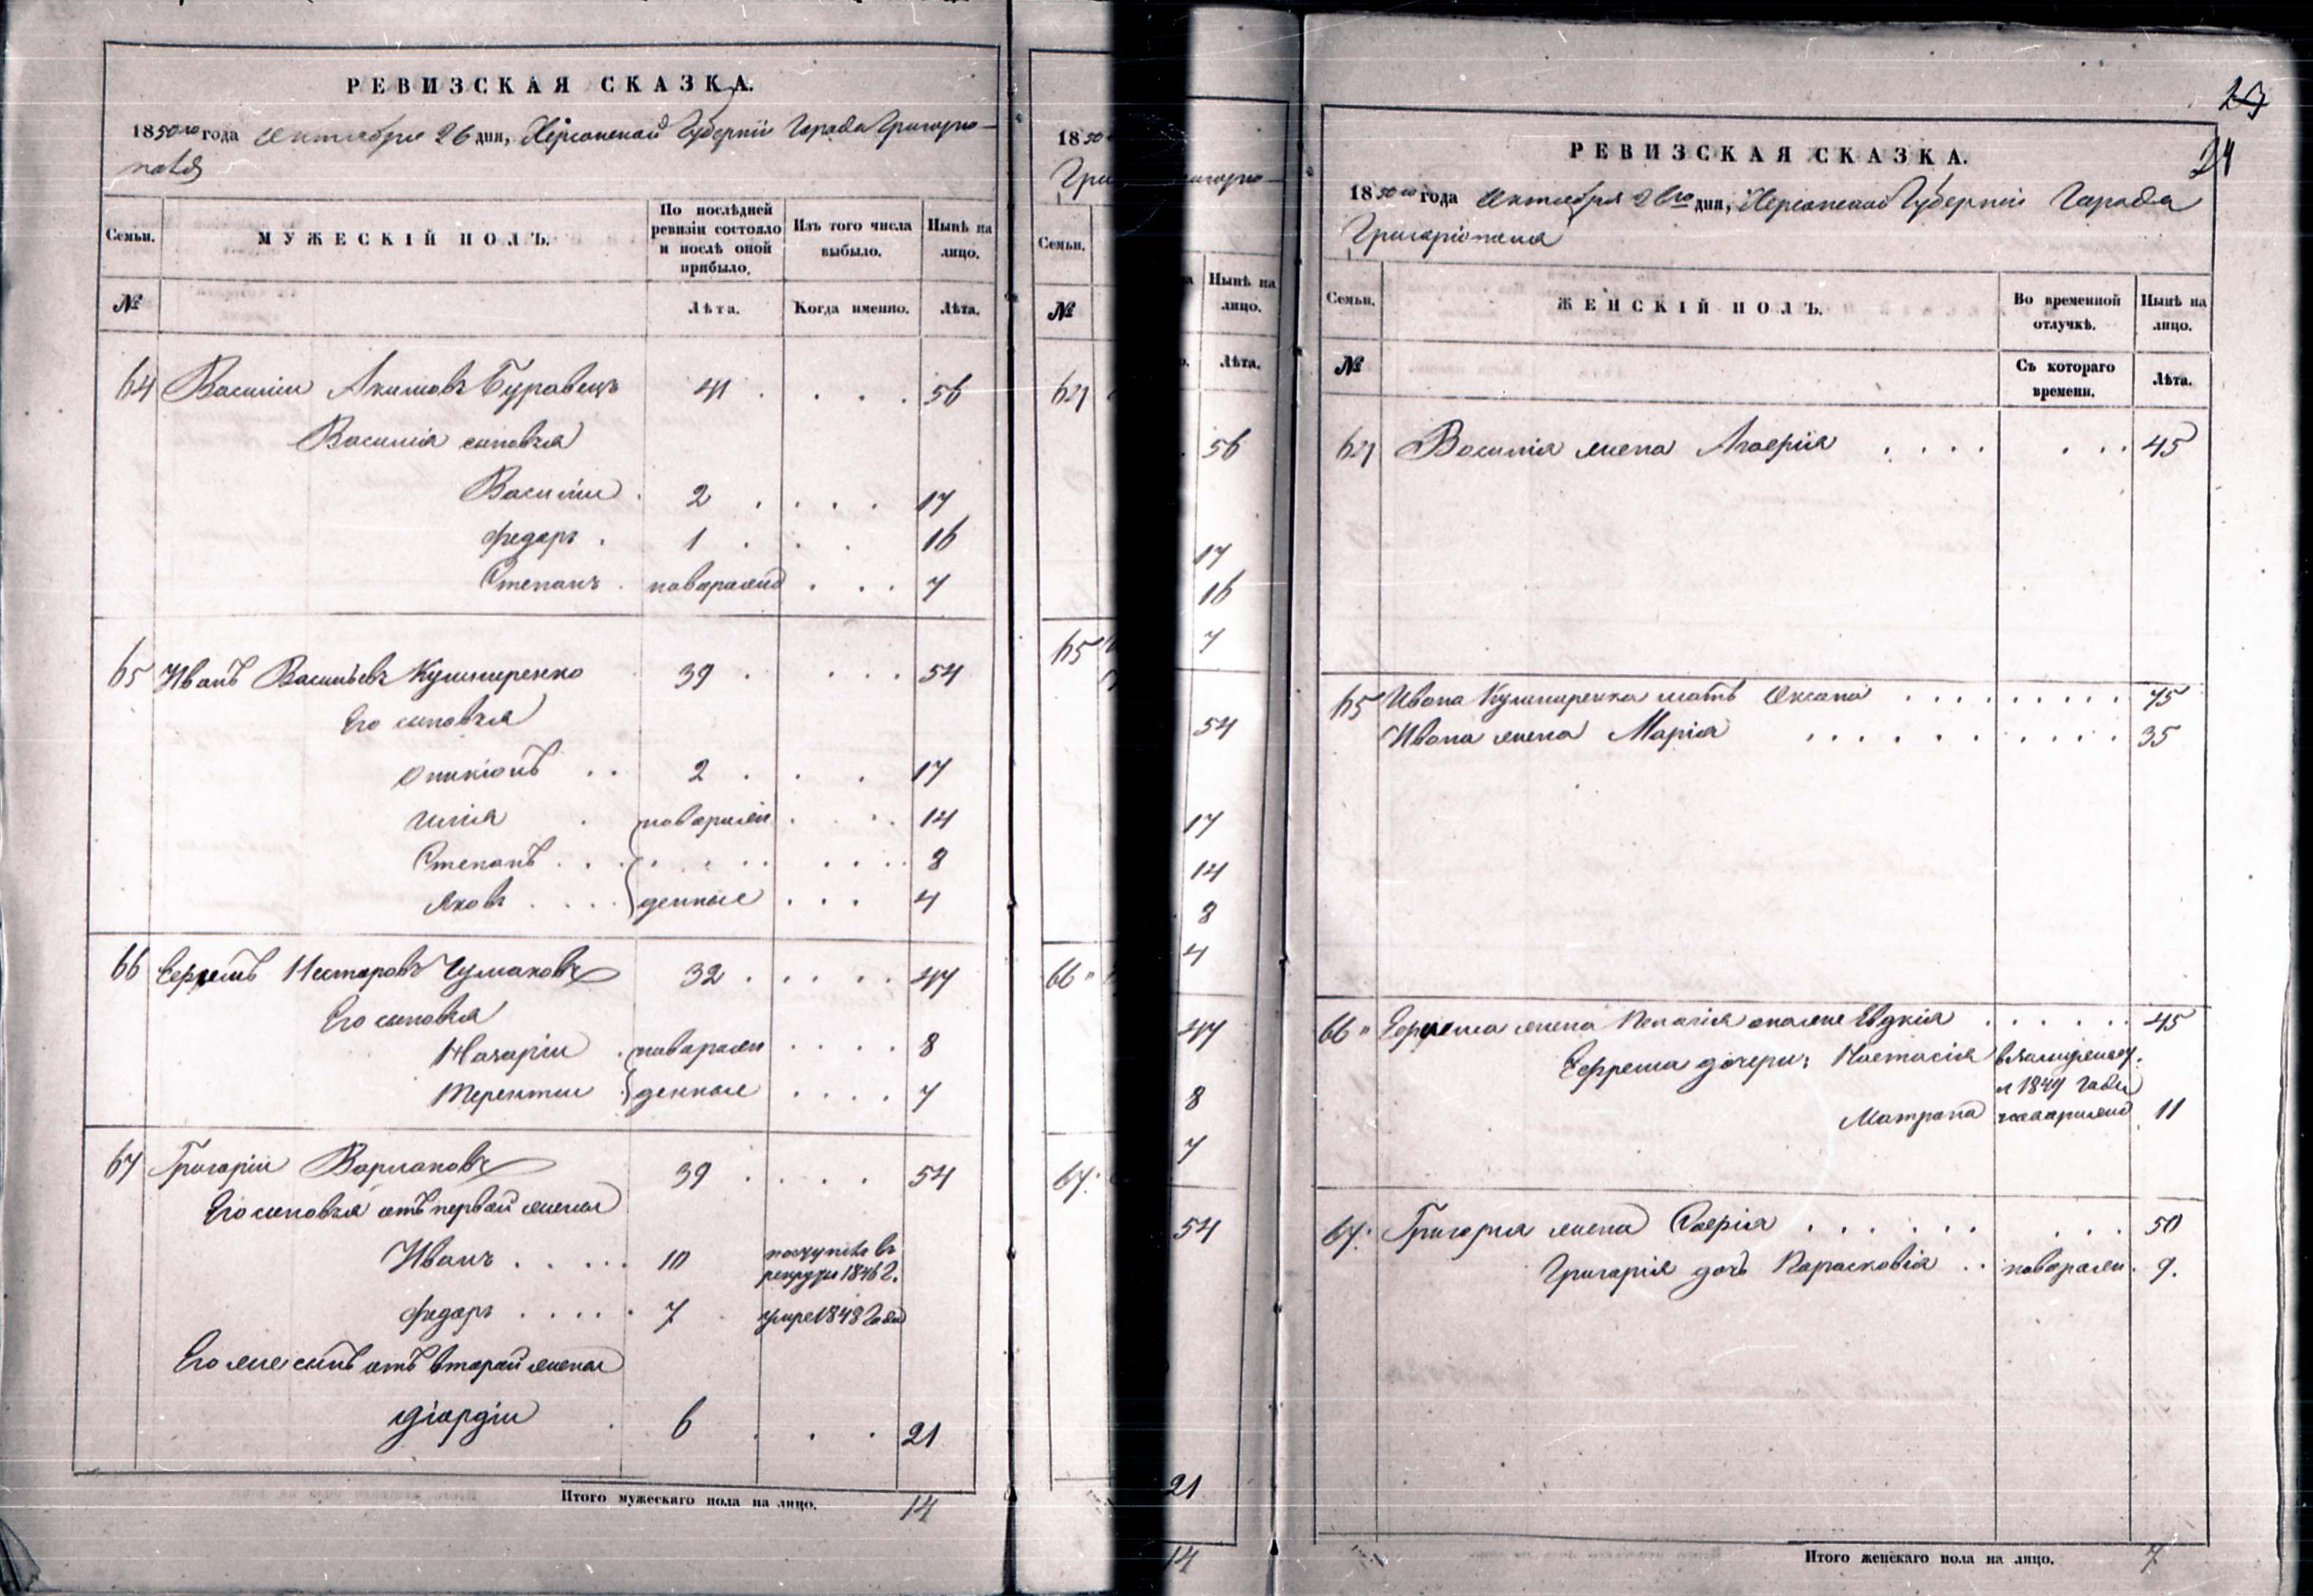 РЕВИЗСКАЯ СКАЗКА.
1850го года Октября 26 дня, Херсонской Губерніи Города Григорио-
поля
Семьи. МУЖЕСКІЙ ПОЛЪ. По послѣдней ревизіи состояло и послѣ оной прибыло. Изъ того числа выбыло. Нынѣ на лицо.
№ Лѣта. Когда именно. Лѣта.
64 Василіи Акимовъ Буравецъ 41 . . . . 56
Василія сыновья
Василіи . 2 . . . . 17
Федоръ . 1 . . . 16
Степанъ . наварожд . . . 7
65 Иванъ Васильевъ Кушниренко 39 . . . . 54
Его сыновья
Оникіонъ . . 2 . . . 17
Илія . наварожден . . . . 14
Степанъ . . . . . . . . . . . . 8
Яковъ . . . . денные . . . 4
66 Ефремъ Нестаровъ Чумаковъ 32 . . . . . 47
Его сыновья
Назаріи . наворожен . . . . 8
Терентии денные . . . . 7
67 Григоріи Варлановъ 39 . . . . 54
Его сыновья отъ первой жены
Иванъ . . . . . 10 поступилъ въ
рекруты 1846 г.
Федоръ . . . . . 7 умре 1848 года
Его же сынъ отъ второй жены
Гіоргіи . 6 . . . 21
Итого мужескаго пола на лицо. 14
1850
Гри
Семьи.
№
64
65
66 "
67.
игорио-
Нынѣ на лицо.
Лѣта.
56
17
16
7
54
17
14
8
4
47
8
7
54
21
14
23
24
РЕВИЗСКАЯ СКАЗКА.
1850го года Октября 26го дня, Херсонской Губерніи Города
Григоріополя
Семьи. ЖЕНСКІЙ ПОЛЪ. Во временной отлучкѣ. Нынѣ на лицо.
№ Съ котораго времени. Лѣта.
64 Василія жена Агаѳрія . . . . . . . 45
65 Ивана Кушниренка мать Оксана . . . . . . . . . 75
Ивана жена Марія . . . . . . . . . . 35
66 " Ефрема жена Пелагія онаже Евдкія . . . . . . 45
Ефрема дочери: Настасія в замужест.
1849 года
Матрона наворожд 11
67. Григорія жена Соѳрія . . . . . . . . . 50
Григорія дочь Парасковія . . наворожен . 9.
Итого женскаго пола на лицо. 7